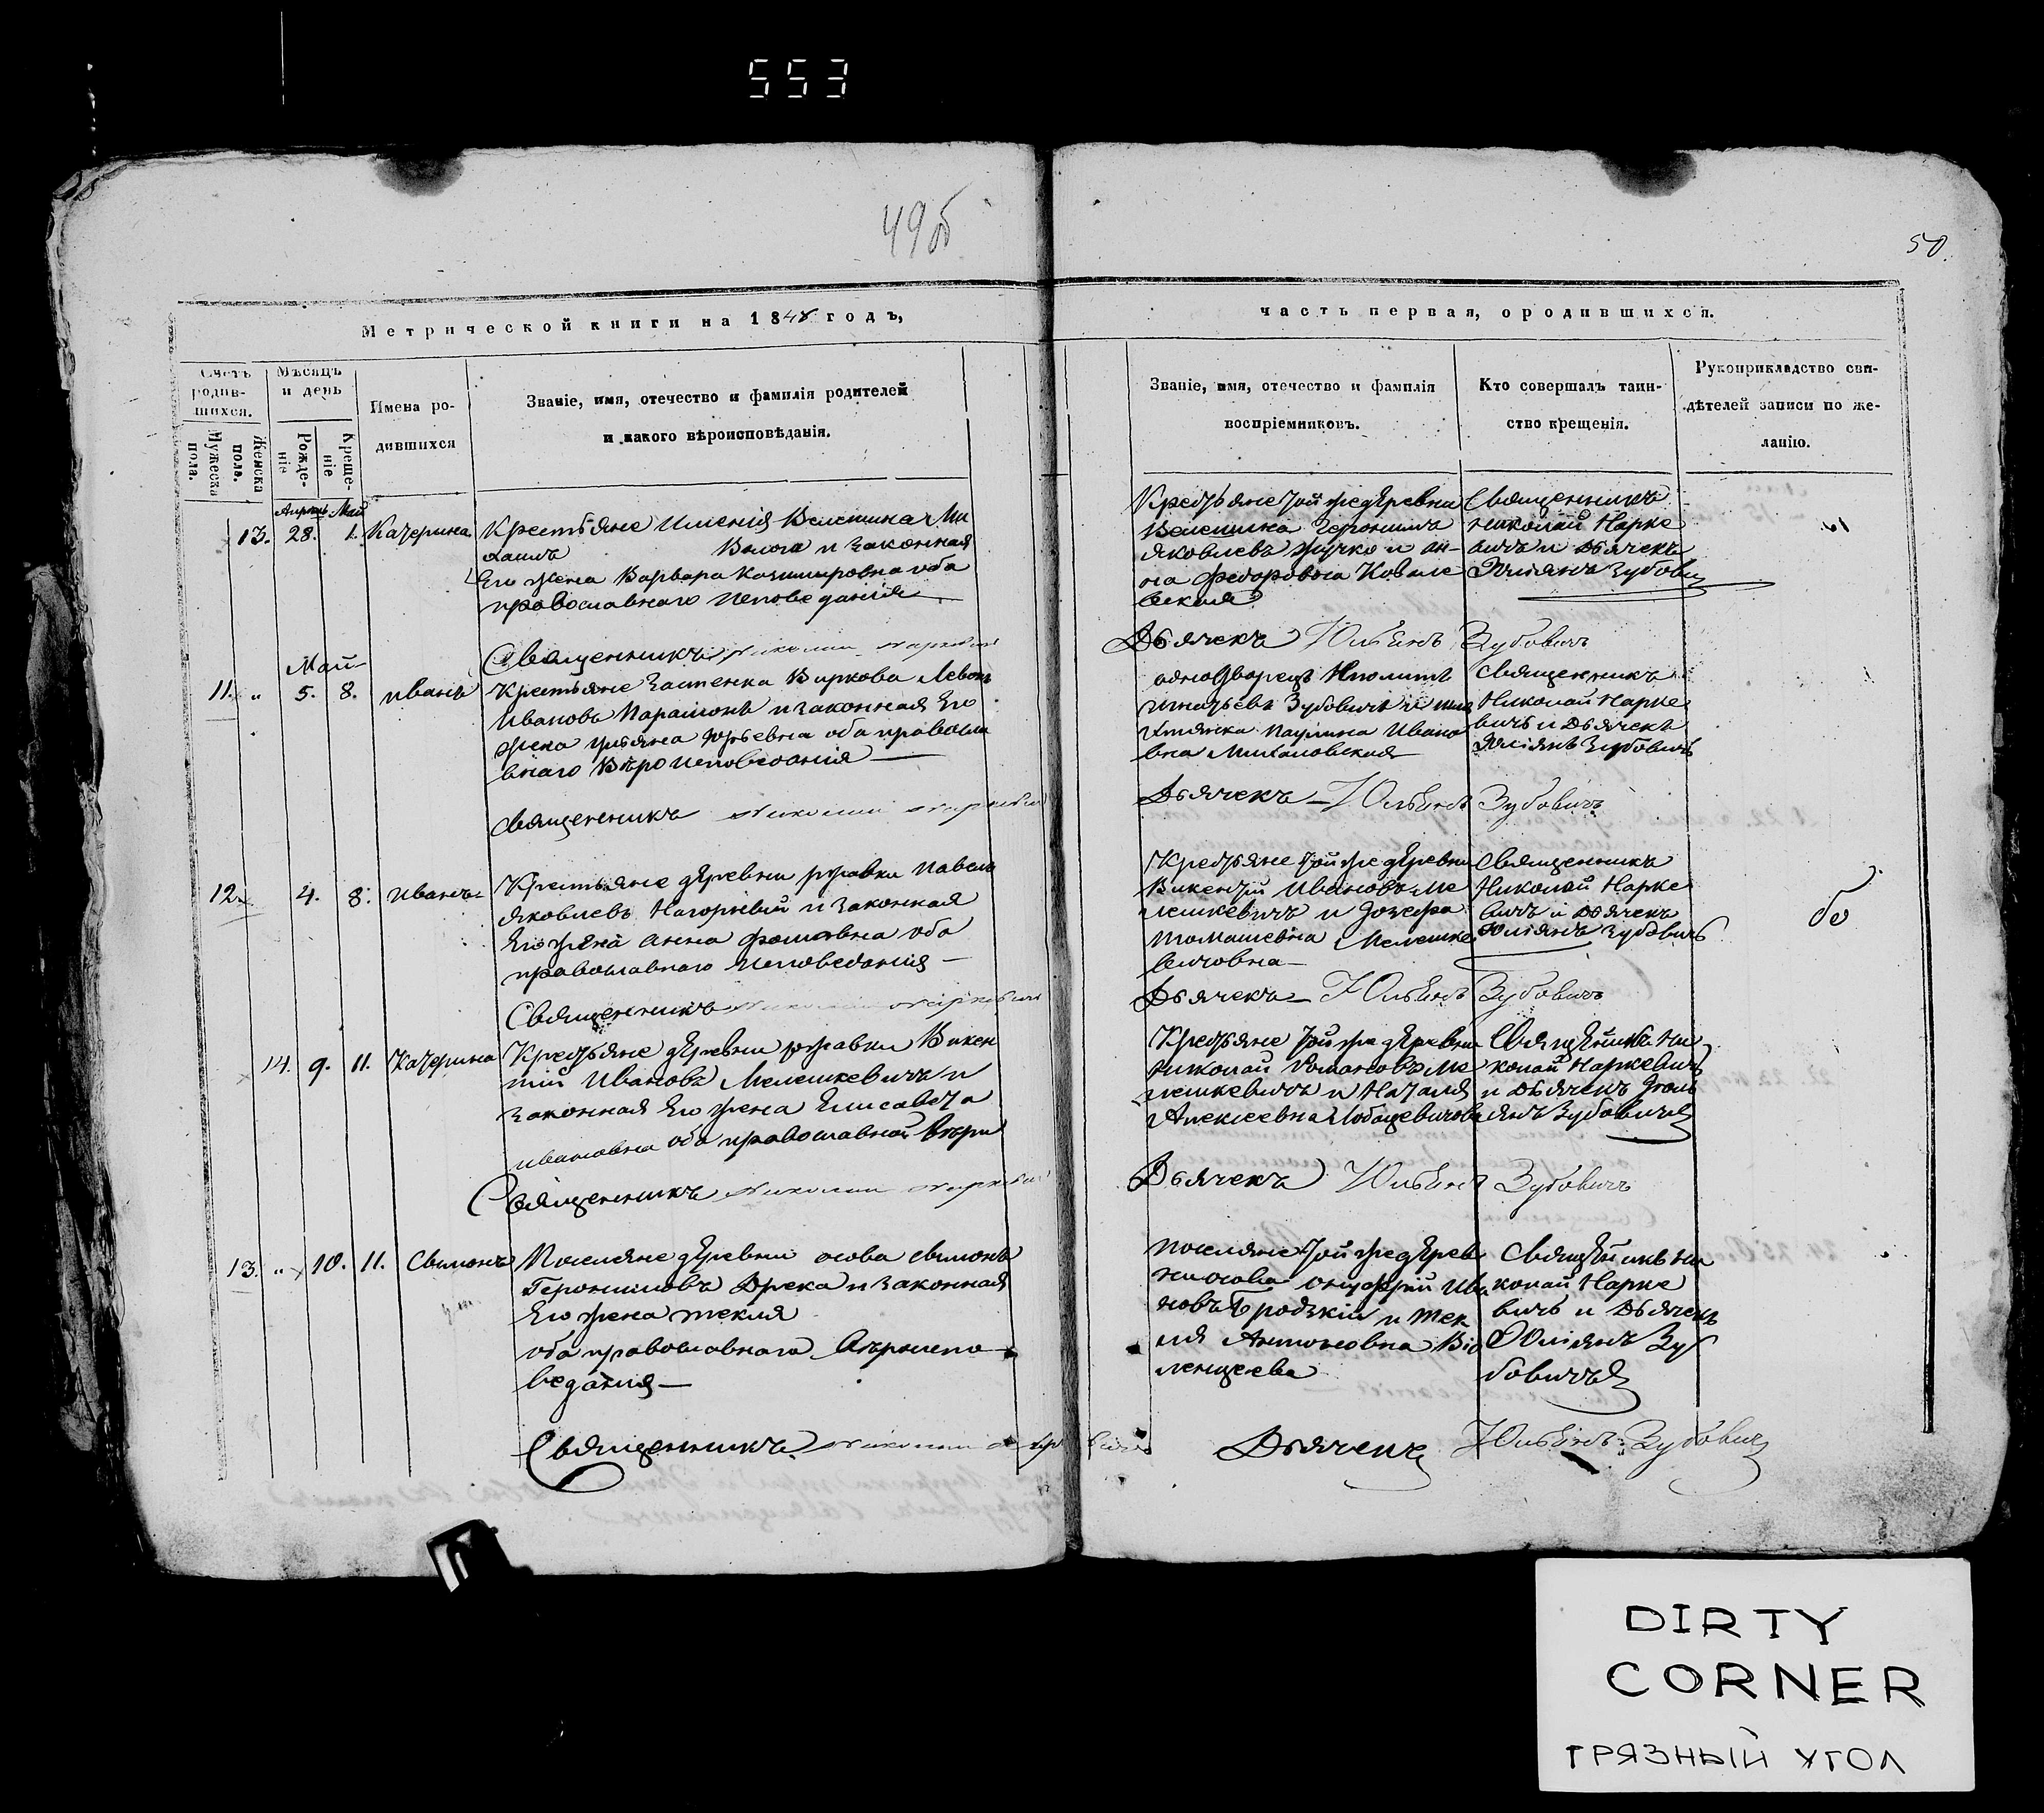 553
49б
50.
Метрической книги на 1848 годъ,
часть первая, ородившихся.
Счетъ родив-шихся.
Мужеска пола.
Женска пола.
Мѣсяцъ и день
Рожде-ніе
Креще-ніе
Имена ро-
дившихся
Званіе, имя, отечество и фамилія родителей
и какого вѣроисповѣданія.
Званіе, имя, отечество и фамилія
воспріемниковъ.
Кто совершалъ таин-
ство крещенія.
Рукоприкладство сви-
дѣтелей записи по же-
ланію.
Апрель Май
13. 28. 1. Катерина
Крестьяне имения Велешина Ми
хаилъ и законная
Его жена Варвара Казимировна оба
православнаго исповедания
Крестьяне той же деревни
Велешина Геронимъ
Яковлевъ и ан-
на Федоровна Ковале
вская
Священникъ
Николай Нарке
вичъ и Дьячекъ
Юлиянъ Зубови
Священникъ Николай Наркевич
Дьячекъ Юльянъ Зубовичъ
Май
11. " 5. 8. иванъ
Крестьяне Застенка Виркова Левонъ
Ивановъ Парамонъ и законная Его
жена ульяна юрьевна оба правосла
внаго Вѣроисповедания
однодворецъ Иполитъ
игнатьевъ Зубовичъ и шля
хтянка Паулина Ивано
вна Михаловская
Священникъ
Николай Нарке
вичъ и Дьячекъ
Юлиянъ Зубовичъ
Священникъ Николай Наркевич
Дьячекъ Юльянъ Зубовичъ
12. 4. 8. Иванъ
Крестьяне деревни Павелъ
Яковлевъ Нагорный и законная
Его жена анна фомовна оба
православнаго исповедания
Крестьяне той же деревни
Викентий Ивановъ Ме
лешкевичъ и Юзефа
томашевна Мелешке
вичовна
Священникъ
Николай Нарке
вичъ и Дьячекъ
Юлиянъ Зубовичъ
Священникъ Николай Наркевич
Дьячекъ Юльянъ Зубовичъ
14. 9. 11. Катерина
Крестьяне деревни Викен
тий Ивановъ Мелешкевичъ и
законная Его жена Елисавета
ивановна оба православной веры
Крестьяне той же деревни
Николай Романовъ Ме
лешкевичъ и Наталя
Алексеевна
Священникъ Ни
колай Наркевичъ
и Дьячекъ Юли
янъ Зубовичъ
Священникъ Николай Наркевич
Дьячекъ Юльянъ Зубовичъ
13. " 10. 11. Свимонъ
Поселяне деревни осова свимонъ
Геронимовъ Дрека и законная
Его жена текля
оба православнаго Вѣроиспо
ведания
Поселяне той же дерев
ни осова онуфрий Ива
новъ Бродзкий и тек
ля Антоновна
Священникъ Ни
колай Нарке
вичъ и Дьячекъ
Юлиянъ Зу
бовичъ
Священникъ Николай Наркевич
Дьячекъ Юльянъ Зубовичъ
DIRTY
CORNER
ГРЯЗНЫЙ УГОЛ